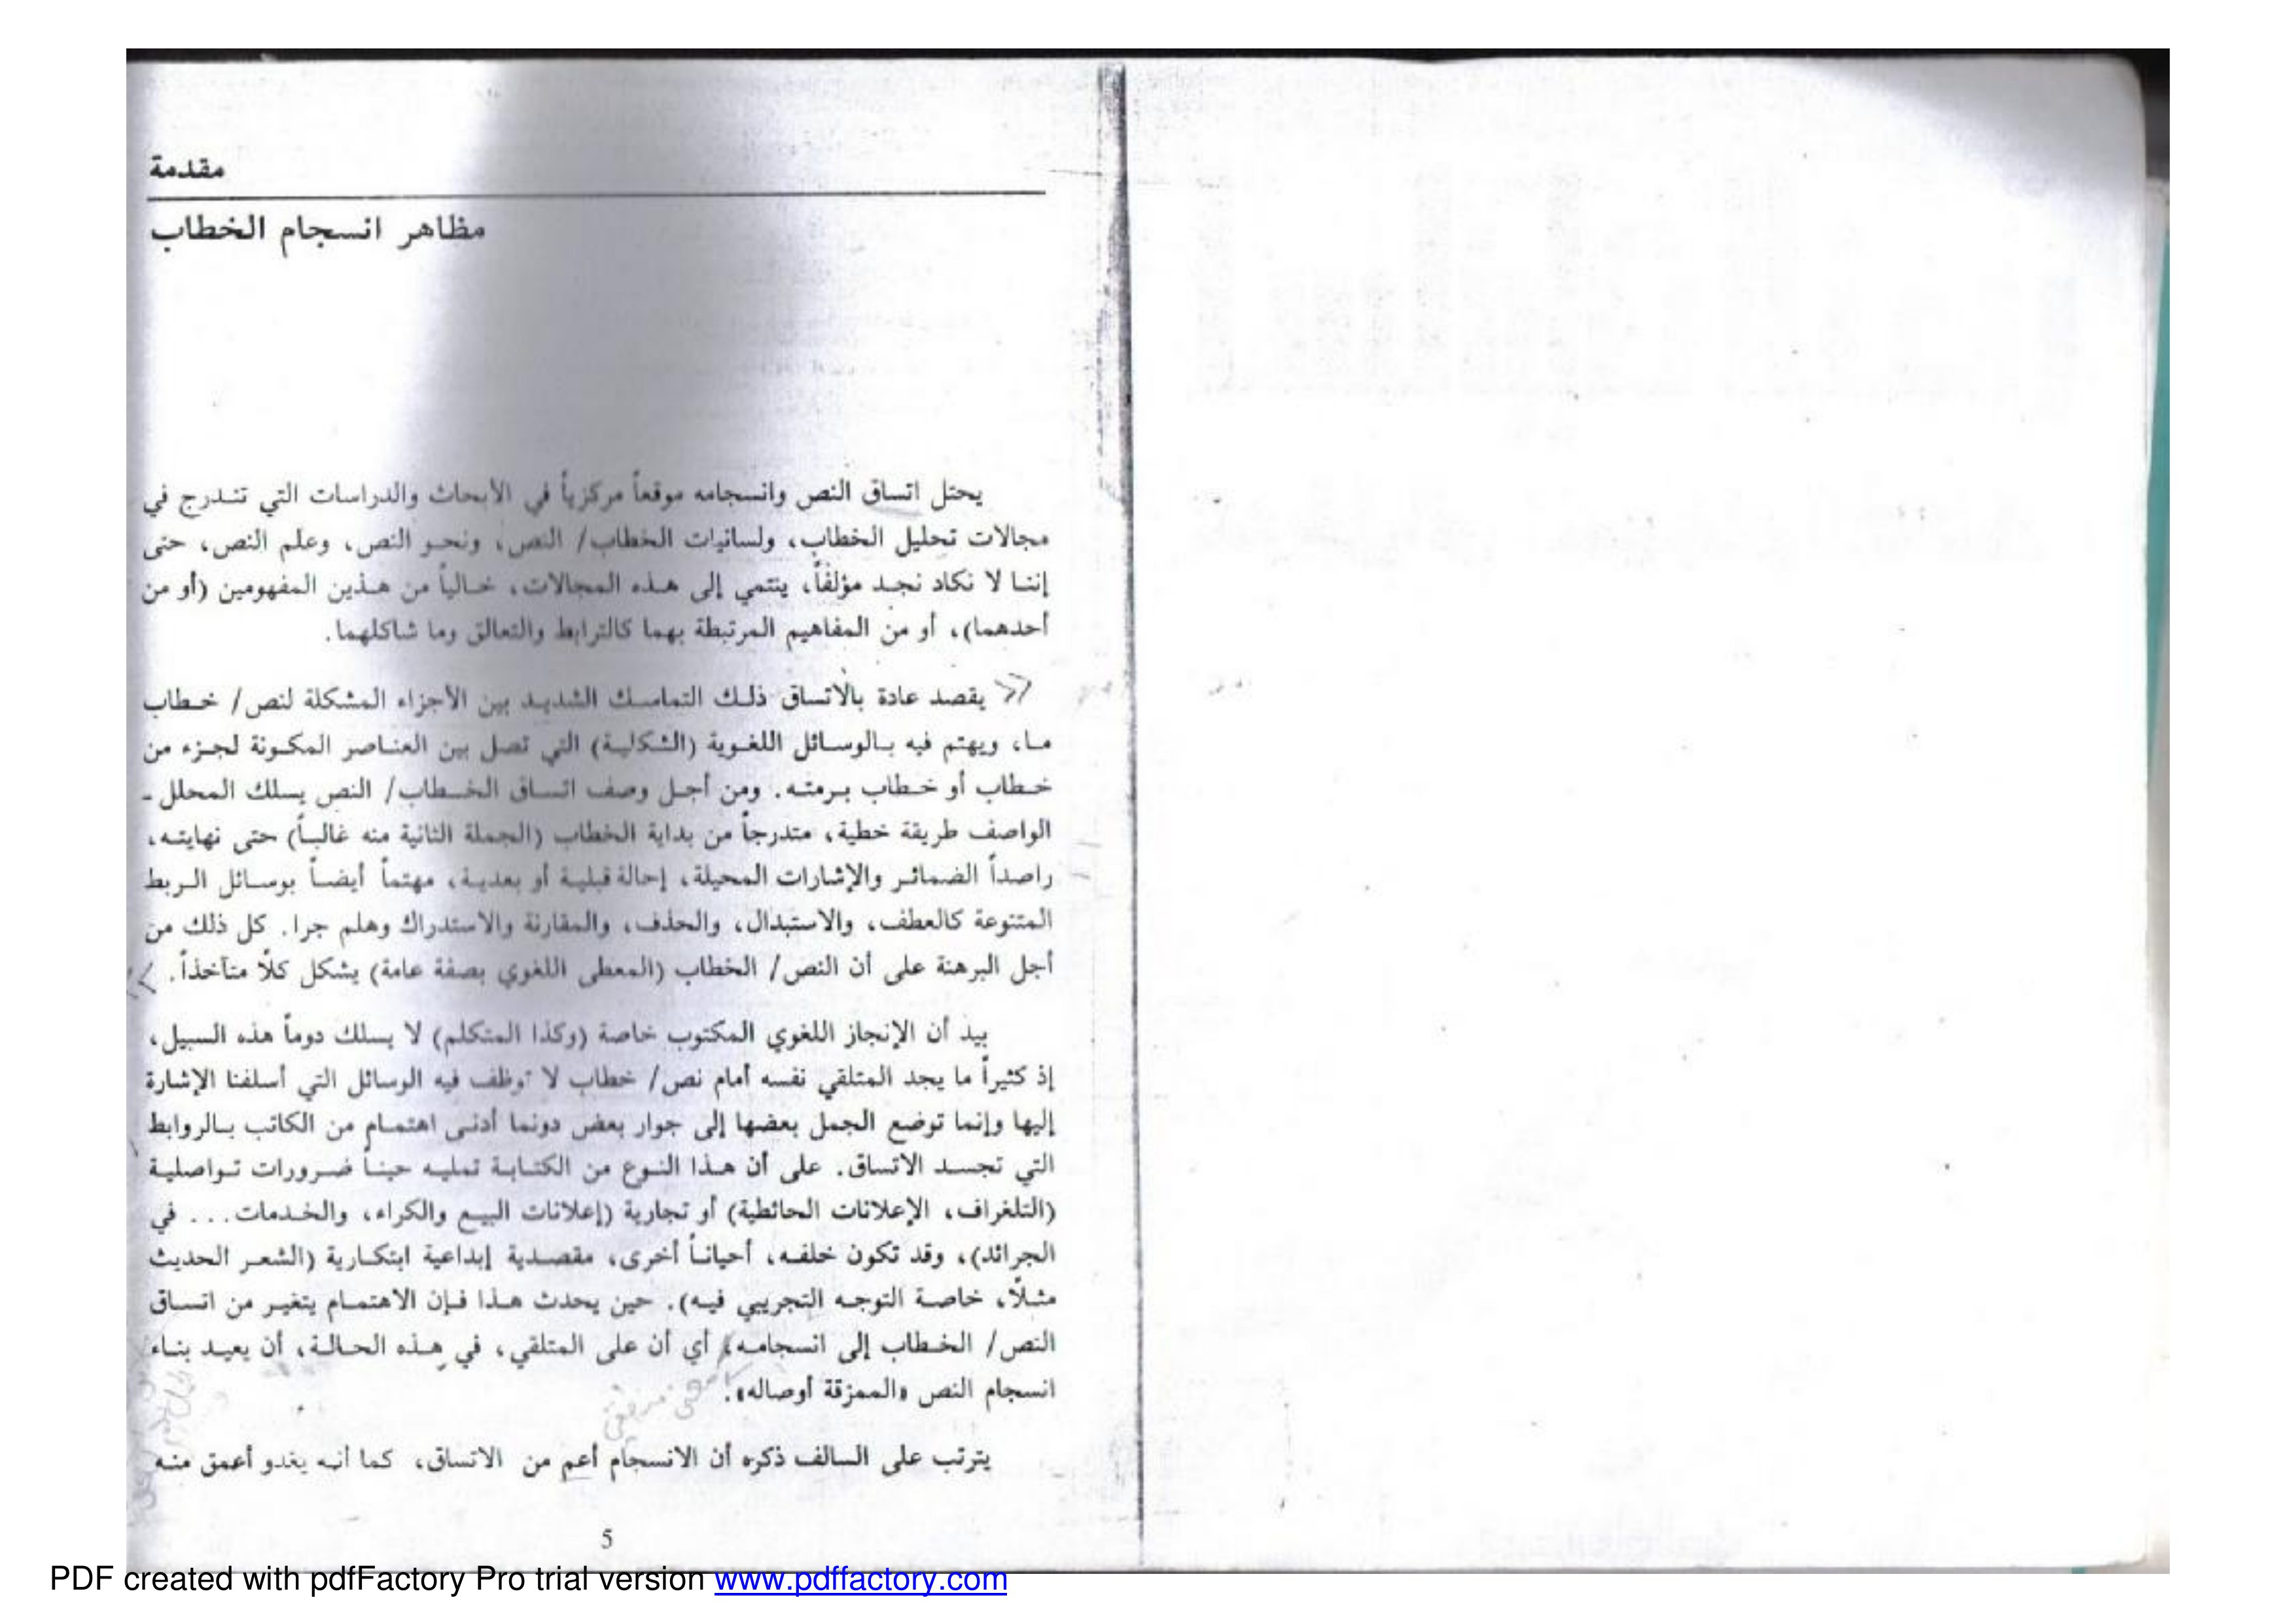 مقدمة
مظاهر انسجام الخطاب
يحتل اتساق النص وانسجامه موقعاً مركزياً في الأبحاث والدراسات التي تندرج في
مجالات تحليل الخطاب، ولسانيات الخطاب/ النص، ونحو النص، وعلم النص، حتى
إننا لا نكاد نجد مؤلفاً، ينتمي إلى هذه المجالات، خالياً من هذين المفهومين (أو من
أحدهما)، أو من المفاهيم المرتبطة بهما كالترابط والتعالق وما شاكلهما.
يقصد عادة بالاتساق ذلك التماسك الشديد بين الأجزاء المشكلة لنص/ خطاب
ما، ويهتم فيه بالوسائل اللغوية (الشكلية) التي تصل بين العناصر المكونة لجزء من
خطاب أو خطاب برمته. ومن أجل وصف اتساق الخطاب/ النص يسلك المحلل -
الواصف طريقة خطية، متدرجاً من بداية الخطاب (الجملة الثانية منه غالباً) حتى نهايته،
راصداً الضمائر والإشارات المحيلة، إحالة قبلية أو بعدية، مهتماً أيضاً بوسائل الربط
المتنوعة كالعطف، والاستبدال، والحذف، والمقارنة والاستدراك وهلم جرا. كل ذلك من
أجل البرهنة على أن النص/ الخطاب (المعطى اللغوي بصفة عامة) يشكل كلًا متآخذاً.
بيد أن الإنجاز اللغوي المكتوب خاصة (وكذا المتكلم) لا يسلك دوماً هذه السبيل،
إذ كثيراً ما يجد المتلقي نفسه أمام نص/ خطاب لا توظف فيه الوسائل التي أسلفنا الإشارة
إليها وإنما توضع الجمل بعضها إلى جوار بعض دونما أدنى اهتمام من الكاتب بالروابط
التي تجسد الاتساق. على أن هذا النوع من الكتابة تمليه حيناً ضرورات تواصلية
(التلغراف، الإعلانات الحائطية) أو تجارية (إعلانات البيع والكراء، والخدمات... في
الجرائد)، وقد تكون خلفه، أحياناً أخرى، مقصدية إبداعية ابتكارية (الشعر الحديث
مثلًا، خاصة التوجه التجريبي فيه). حين يحدث هذا فإن الاهتمام يتغير من اتساق
النص/ الخطاب إلى انسجامه، أي أن على المتلقي، في هذه الحالة، أن يعيد بناء
انسجام النص «الممزقة أوصاله».
يترتب على السالف ذكره أن الانسجام أعم من الاتساق، كما أنه يغدو أعمق منه
5
PDF created with pdfFactory Pro trial version www.pdffactory.com